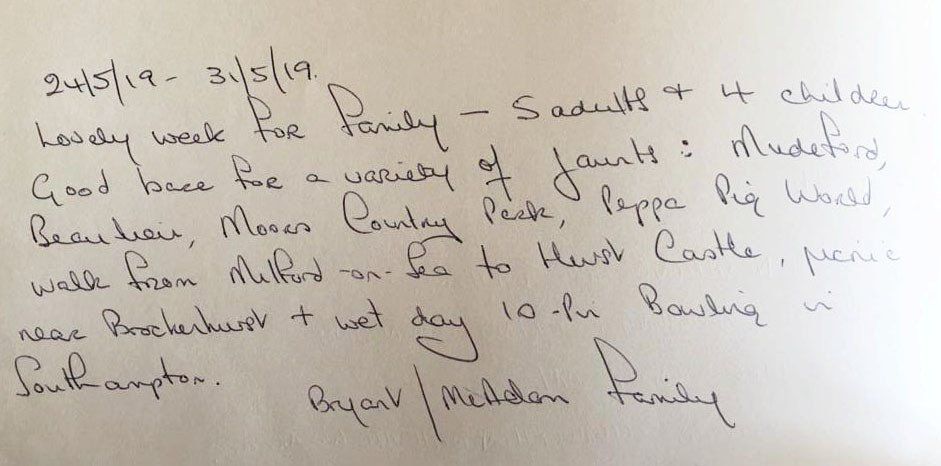 24/5/19 - 31/5/19.
Lovely week for family - 5 adults + 4 children
Good base for a variety of jaunts: Mudeford,
Beaulieu, Moors Country Park, Peppa Pig World,
walk from Milford-on-Sea to Hurst Castle, picnic
near Brockenhurst + wet day 10-Pin Bowling in
Southampton.
Bryant / Family